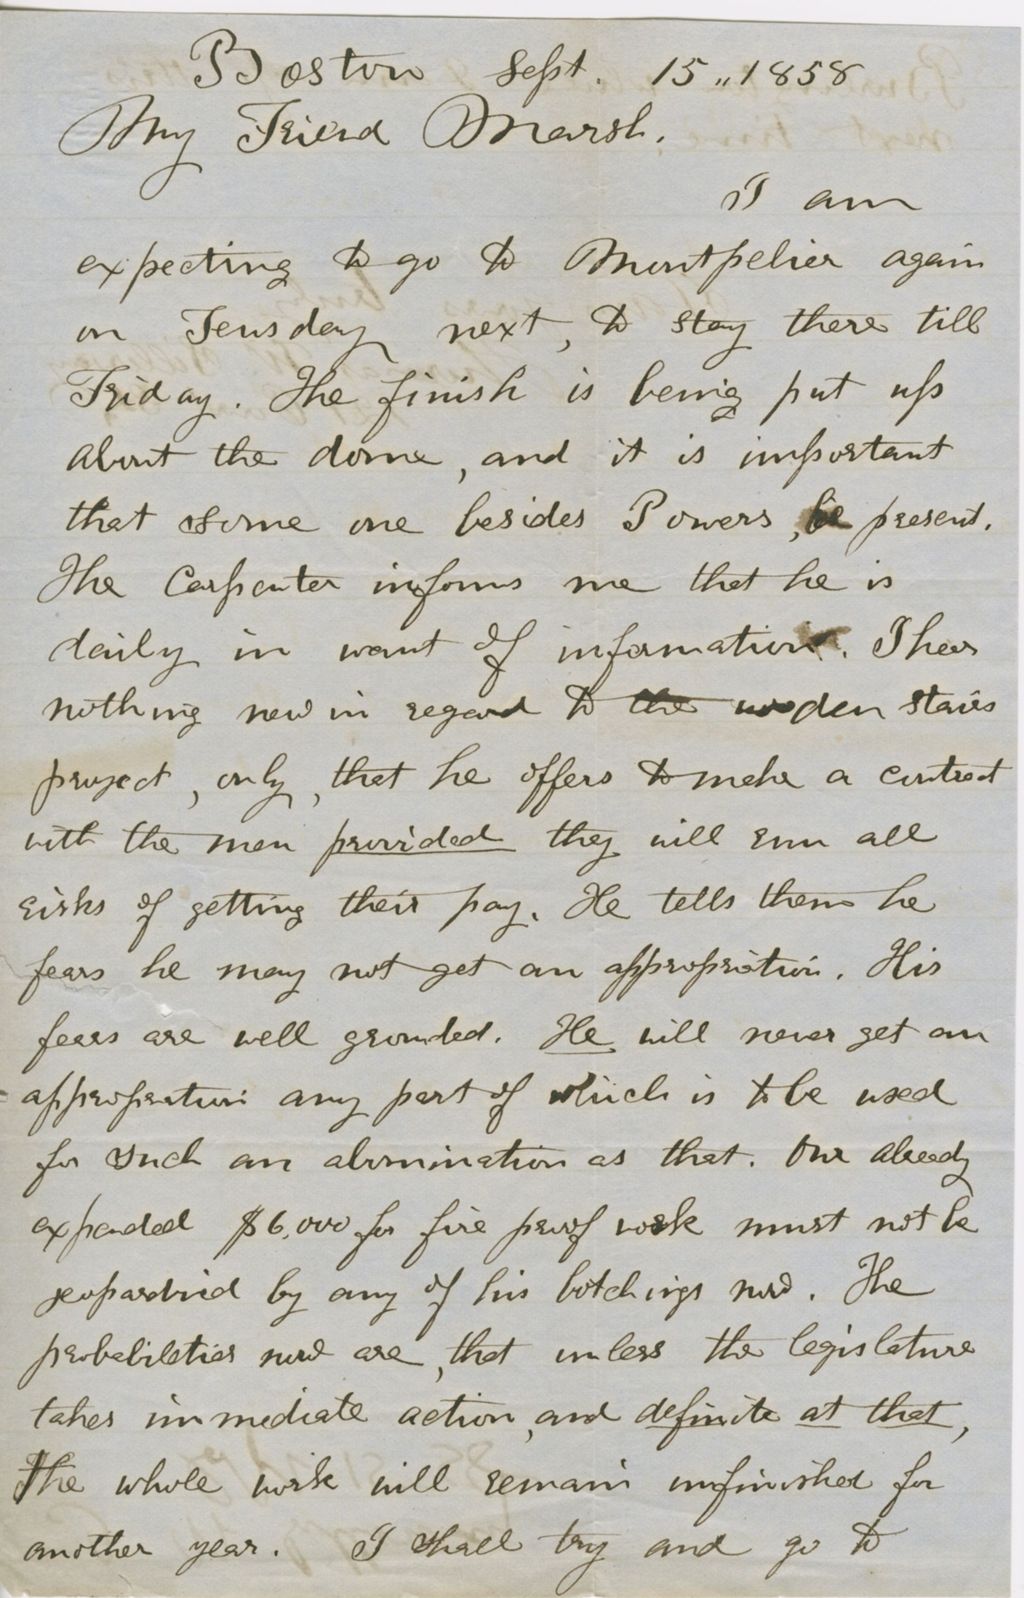 Boston Sept. 15,, 1858
My Friend Marsh.
I am
expecting to go to Montpelier again
on Teusday next, to stay there till
Friday. The finish is being put up
about the dome, and it is important
that some one besides Powers, be present.
The Carpenter informs me that he is
daily in want of information. I hear
nothing new in regard to the wooden stairs
project, only, that he offers to make a contract
with the men provided they will run all
risks of getting their pay. He tells them he
fears he may not get an appropriation. His
fears are well grounded. He will never get an
appropriation any part of which is to be used
for such an abomination as that. Our already
expended $6,000 for fire proof work must not be
jeopardised by any of his botchings now. The
probabilities now are, that unless the legislature
takes immediate action, and definite at that,
The whole work will remain unfinished for
another year. I shall try and go to